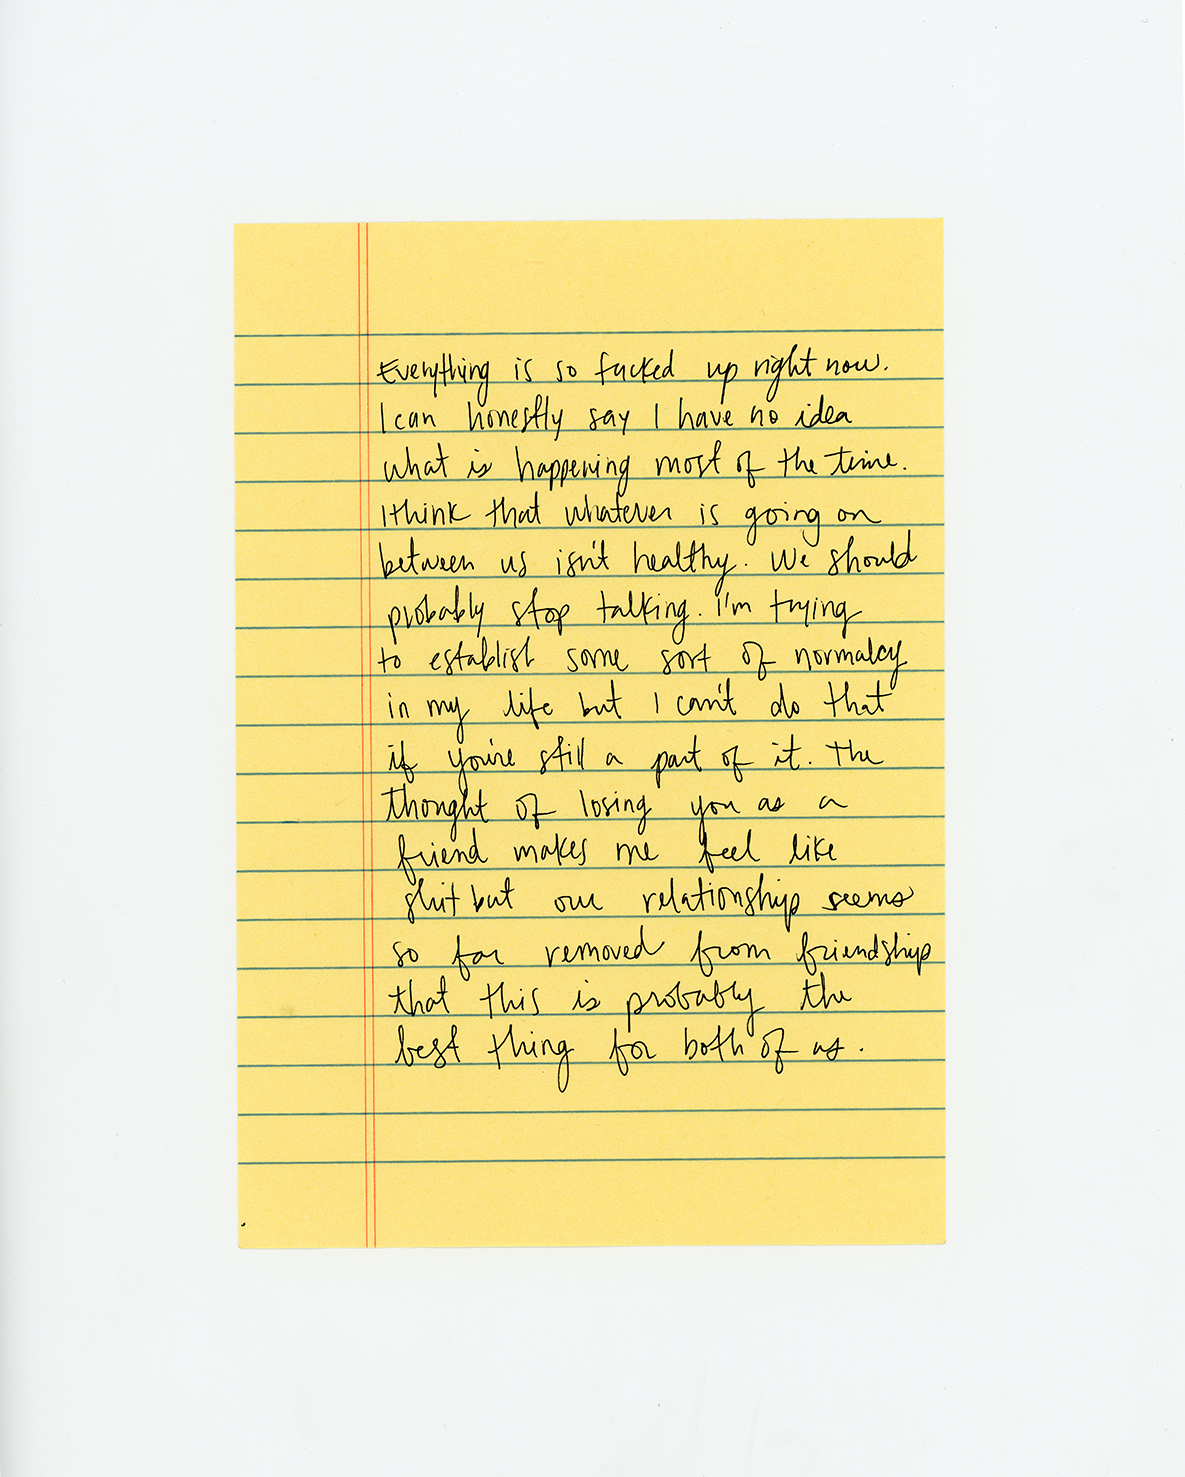 Everything is so fucked up right now.
I can honestly say I have no idea
what is happening most of the time.
I think that whatever is going on
between us isn't healthy. We should
probably stop talking. I'm trying
to establish some sort of normalcy
in my life but I can't do that
if you're still a part of it. The
thought of losing you as a
friend makes me feel like
shit but our relationship seems
so far removed from friendship
that this is probably the
best thing for both of us.